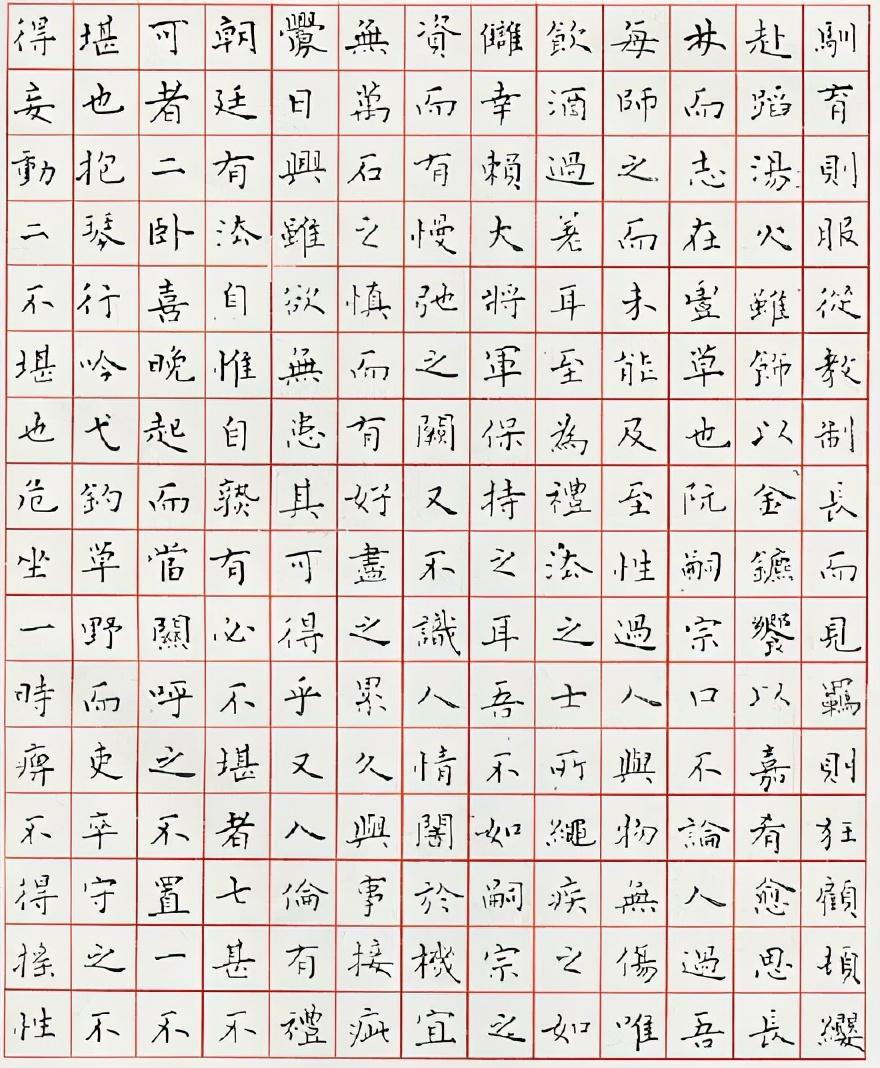 馴育則服從教制長而見羈則狂顧頓纓
赴蹈湯火雖飾以金鑣饗以嘉肴愈思長
林而志在豐草也阮嗣宗口不論人過吾
每師之而未能及至性過人與物無傷唯
飲酒過差耳至為禮法之士所繩疾之如
讎幸賴大將軍保持之耳吾不如嗣宗之
資而有慢弛之闕又不識人情闇於機宜
無萬石之慎而有好盡之累久與事接疵
釁日興雖欲無患其可得乎又人倫有禮
朝廷有法自惟自孰有必不堪者七甚不
可者二卧喜晚起而當關呼之不置一不
堪也抱琴行吟弋釣草野而吏卒守之不
得妄動二不堪也危坐一時痹不得搖性